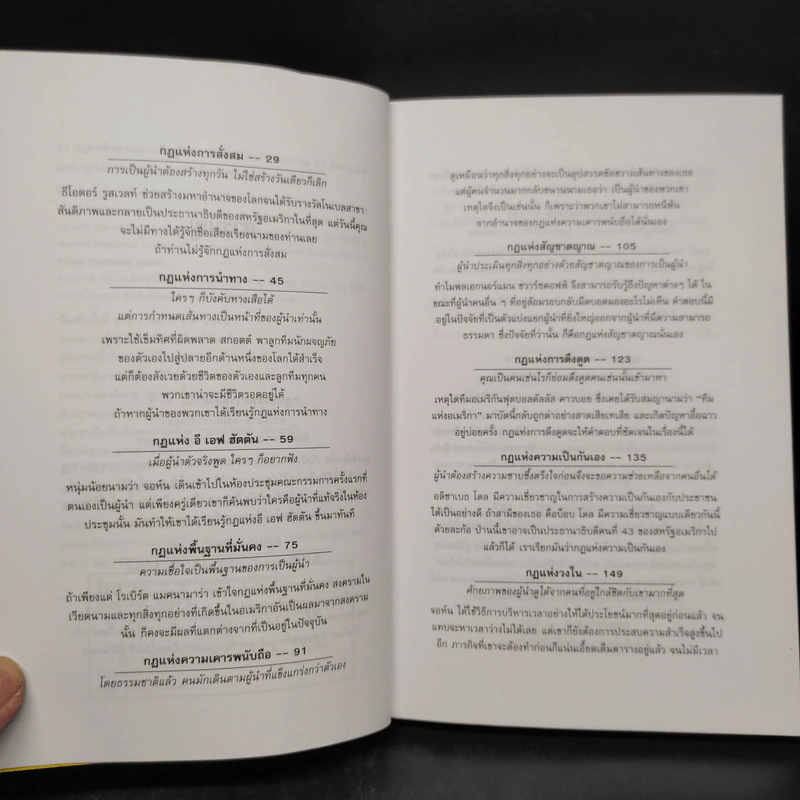 กฏแห่งการสั่งสม -- 29
การเป็นผู้นำต้องสร้างทุกวัน ไม่ใช่สร้างวันเดียวก็เลิก
ธีโอดอร์ รูสเวลท์ ช่วยสร้างมหาอำนาจของโลกจนได้รับรางวัลโนเบลสาขา
สันติภาพและกลายเป็นประธานาธิบดีของสหรัฐอเมริกาในที่สุด แต่วันนี้คุณ
จะไม่มีทางได้รู้จักชื่อเสียงเรียงนามของท่านเลย
ถ้าท่านไม่รู้จักกฎแห่งการสั่งสม
กฏแห่งการนำทาง -- 45
ใครๆ ก็บังคับทางเสือได้
แต่การกำหนดเส้นทางเป็นหน้าที่ของผู้นำเท่านั้น
เพราะใช้เข็มทิศที่ผิดพลาด สกอตต์ พาลูกทีมนักผจญภัย
ของตัวเองไปสู่ปลายอีกด้านหนึ่งของโลกได้สำเร็จ
แต่ก็ต้องสังเวยด้วยชีวิตของตัวเองและลูกทีมทุกคน
พวกเขาน่าจะมีชีวิตรอดอยู่ได้
ถ้าหากผู้นำของพวกเขาได้เรียนรู้กฎแห่งการนำทาง
กฏแห่ง อี เอฟ ฮัตตัน -- 59
เมื่อผู้นำตัวจริงพูด ใครๆ ก็อยากฟัง
หนุ่มน้อยนามว่า จอห์น เดินเข้าไปในห้องประชุมคณะกรรมการครั้งแรกที่
ตนเองเป็นผู้นำ แต่เพียงครู่เดียวเขาก็ค้นพบว่าใครคือผู้นำที่แท้จริงในห้อง
ประชุมนั้น มันทำให้เขาได้เรียนรู้กฎแห่งอี เอฟ ฮัตตัน ขึ้นมาทันที
กฏแห่งพื้นฐานที่มั่นคง -- 75
ความเชื่อใจเป็นพื้นฐานของการเป็นผู้นำ
ถ้าเพียงแต่ โรเบิร์ต แมคนามาร่า เข้าใจกฎแห่งพื้นฐานที่มั่นคง สงครามใน
เวียดนามและทุกสิ่งทุกอย่างที่เกิดขึ้นในอเมริกาอันเป็นผลมาจากสงคราม
นั้น ก็คงจะมีผลที่แตกต่างจากที่เป็นอยู่ในปัจจุบัน
กฏแห่งความเคารพนับถือ -- 91
โดยธรรมชาติแล้ว คนมักเดินตามผู้นำที่แข็งแกร่งกว่าตัวเอง
ดูเหมือนว่าทุกสิ่งทุกอย่างจะเป็นอุปสรรคขัดขวางเส้นทางของเธอ
แต่ผู้คนจำนวนมากกลับขนานนามเธอว่า เป็นผู้นำของพวกเขา
เหตุใดจึงเป็นเช่นนั้น ก็เพราะว่าพวกเขาไม่สามารถหนีพ้น
จากอำนาจของกฎแห่งความเคารพนับถือได้นั่นเอง
กฏแห่งสัญชาตญาณ -- 105
ผู้นำประเมินทุกสิ่งทุกอย่างด้วยสัญชาตญาณของการเป็นผู้นำ
ทำไมพลเอกนอร์แมน ชวาร์ซคอฟฟ์ จึงสามารถรับรู้ถึงปัญหาต่างๆ ได้ ใน
ขณะที่ผู้นำคนอื่น ๆ ที่อยู่ล้อมรอบกลับมืดบอดมองอะไรไม่เห็น คำตอบนี้มี
อยู่ในปัจจัยที่เป็นตัวแบ่งแยกผู้นำที่ยิ่งใหญ่ออกจากผู้นำที่มีความสามารถ
ธรรมดา ซึ่งปัจจัยที่ว่านั้น ก็คือกฎแห่งสัญชาตญาณนั่นเอง
กฏแห่งการดึงดูด -- 123
คุณเป็นคนเช่นไรก็ย่อมดึงดูดคนเช่นนั้นเข้ามาหา
เหตุใดทีมอเมริกันฟุตบอลดัลลัส คาวบอย ซึ่งเคยได้รับสมญานามว่า "ทีม
แห่งอเมริกา" มาบัดนี้กลับถูกด่าอย่างสาดเสียเทเสีย และเกิดปัญหาอื้อฉาว
อยู่บ่อยครั้ง กฎแห่งการดึงดูดจะให้คำตอบที่ชัดเจนในเรื่องนี้ได้
กฏแห่งความเป็นกันเอง -- 135
ผู้นำต้องสร้างความซาบซึ้งตรึงใจก่อนจึงจะขอความช่วยเหลือจากคนอื่นได้
อลิซาเบธ โดล มีความเชี่ยวชาญในการสร้างความเป็นกันเองกับประชาชน
ได้เป็นอย่างดี ถ้าสามีของเธอ คือบ็อบ โดล มีความเชี่ยวชาญแบบเดียวกันนี้
ด้วยละก้อ ป่านนี้เขาอาจเป็นประธานาธิบดีคนที่ 43 ของสหรัฐอเมริกาไป
แล้วก็ได้ เราเรียกมันว่ากฎแห่งความเป็นกันเอง
กฏแห่งวงใน -- 149
ศักยภาพของผู้นำดูได้จากคนที่อยู่ใกล้ชิดกับเขามากที่สุด
จอห์น ได้ใช้วิธีการบริหารเวลาอย่างให้ได้ประโยชน์มากที่สุดอยู่ก่อนแล้ว จน
แทบจะหาเวลาว่างไม่ได้เลย แต่เขาก็ยังต้องการประสบความสำเร็จสูงขึ้นไป
อีก ภาระกิจที่เขาจะต้องทำก่อนก็แน่นเอี๊ยดเต็มตารางอยู่แล้ว จนไม่มีเวลา